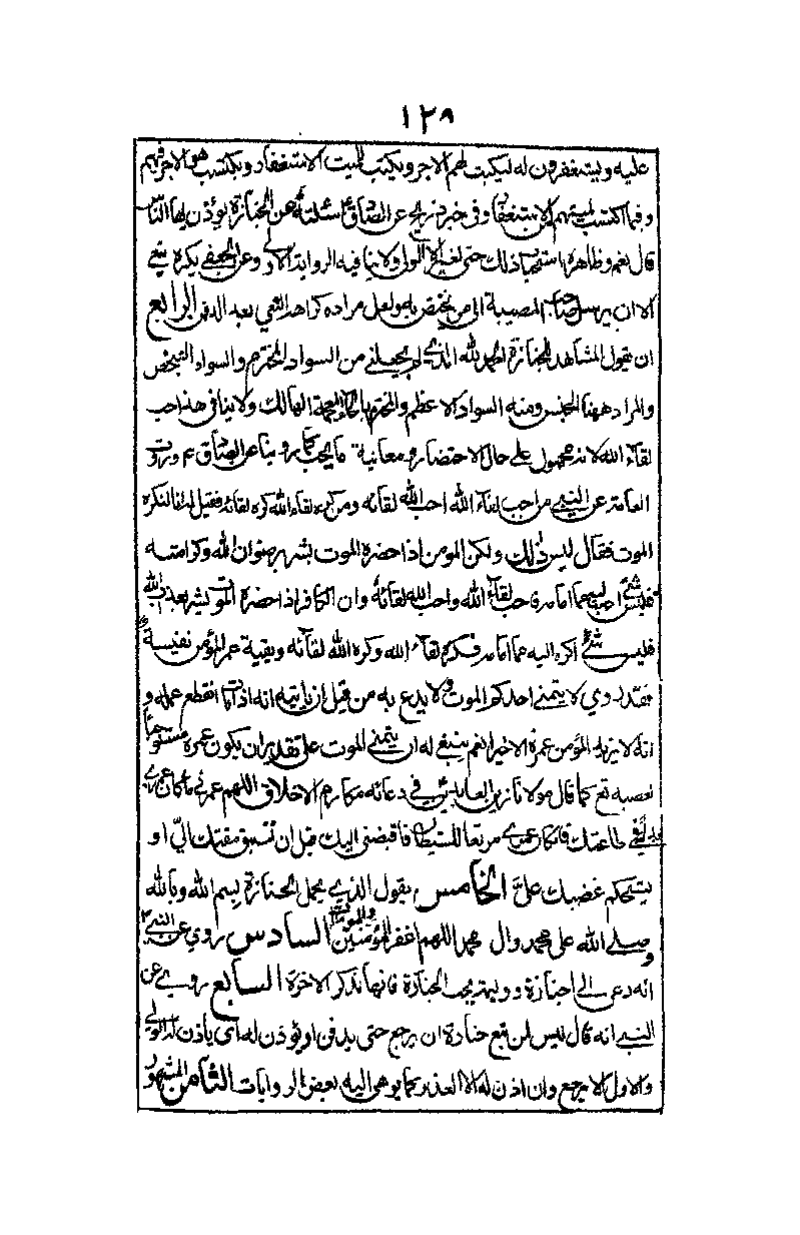 ١٢٩
عليه ويستغفرون له ليكتب لهم الاجر ويكتب للميت الاستغفار ويكتسب هو الاجر فيهم
وفيما اكتسب لميتهم من الاستغفار وفي خبر ذريح عن الصادق ع سئلته عن الجنازة يؤذن بها الناس
قال نعم وظاهره استحباب ذلك حتى لغير الولي ولا ينافيه الرواية الاولى وعن الجعفي يكره نعي
الا ان يرسل صاحب المصيبة الى من يختص به ولعل مراده كراهة النعي بعد الدفن الرابع
ان يقول المشاهد للجنازة الحمد لله الذي لم يجعلني من السواد المخترم والسواد الشخص
والمراد ههنا الجنس ومنه السواد الاعظم والمخترم بالخاء المعجمة الهالك ولا ينافي هذا حب
لقاء الله لانه محمول على حال الاحتضار ومعاينة ما يحب كما روينا عن الصادق ع وروت
العامة عن النبي من احب لقاء الله احب الله لقائه ومن كره لقاء الله كره لقائه فقيل له انا لنكره
الموت فقال ليس ذلك ولكن المومن اذا حضره الموت بشر برضوان الله وكرامته
فليس شئ احب اليه مما امامه فاحب لقاء الله واحب الله لقائه وان الكافر اذا حضره الموت بشر بعذاب الله
فليس شئ اكره اليه مما امامه فكره لقاء الله وكره الله لقائه وبقية عمر المؤمن نفيسة
فقد روي لا يتمنى احدكم الموت ولا يدع به من قبل ان ياتيه انه اذا مات انقطع عمله و
انه لا يزيد المؤمن عمره الا خيرا نعم ينبغي له ان يتمنى الموت على تقدير ان يكون عمره مستوجبا
لغضبه تع كما قال مولانا زين العابدين في دعائه مكارم الاخلاق اللهم عمرني ما كان عمري
بذلة في طاعتك فاذا كان عمري مرتعا للشيطان فاقبضني اليك قبل ان تسبق مقتك الي او
يستحكم غضبك علي الخامس يقول الذي يحمل الجنازة بسم الله وبالله
وصلى الله على محمد وال محمد اللهم اغفر للمؤمنين والمؤمنات السادس روي عن النبي
انه دعى الى جنازة ووليمة يجب الجنازة فانها تذكر الاخرة السابع روي عن
النبي انه قال ليس لمن تبع جنازة ان يرجع حتى يدفن او يؤذن له اى ياذن له الولي
والاولى لا يرجع وان اذن له الا لعذر كما يومى اليه بعض الروايات الثامن المشهور